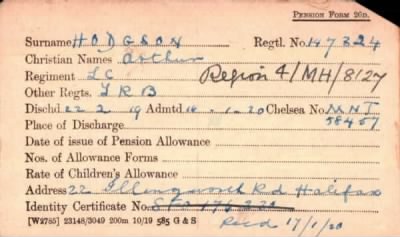 PENSION FORM 26D.
Surname HODGSON Regtl. No. 147324
Christian Names Arthur
Regiment LC Region 4/MH/8127
Other Regts. LRB
Dischd 22 2 19 Admtd 14 - 1 - 20 Chelsea No. MNT
Place of Discharge 58457
Date of issue of Pension Allowance
Nos. of Allowance Forms
Rate of Children's Allowance
Address 22 Illingworth Rd Halifax
Identity Certificate No.
[W2785] 23148/3049 200m 10/19 585 G & S Recd 17/1/20